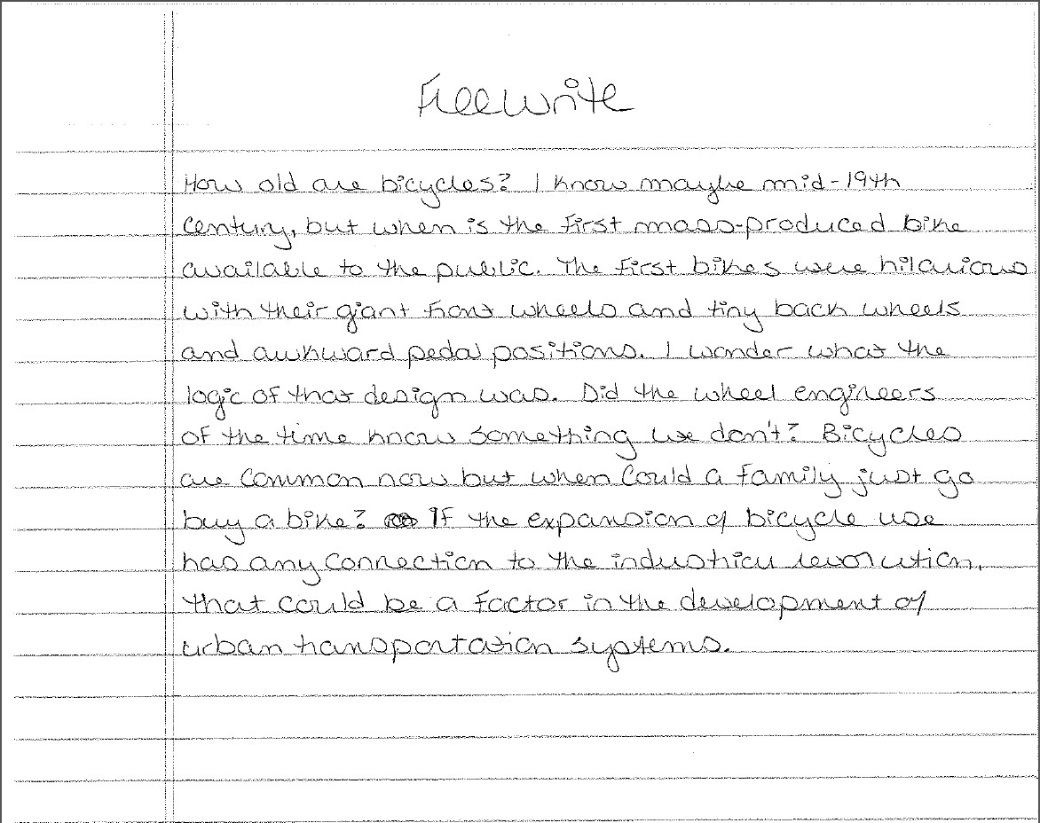 Freewrite
How old are bicycles? I know maybe mid-19th
century, but when is the first mass-produced bike
available to the public. The first bikes were hilarious
with their giant front wheels and tiny back wheels
and awkward pedal positions. I wonder what the
logic of that design was. Did the wheel engineers
of the time know something we don't? Bicycles
are common now but when could a family just go
buy a bike? If the expansion of bicycle use
has any connection to the industrial revolution,
that could be a factor in the development of
urban transportation systems.